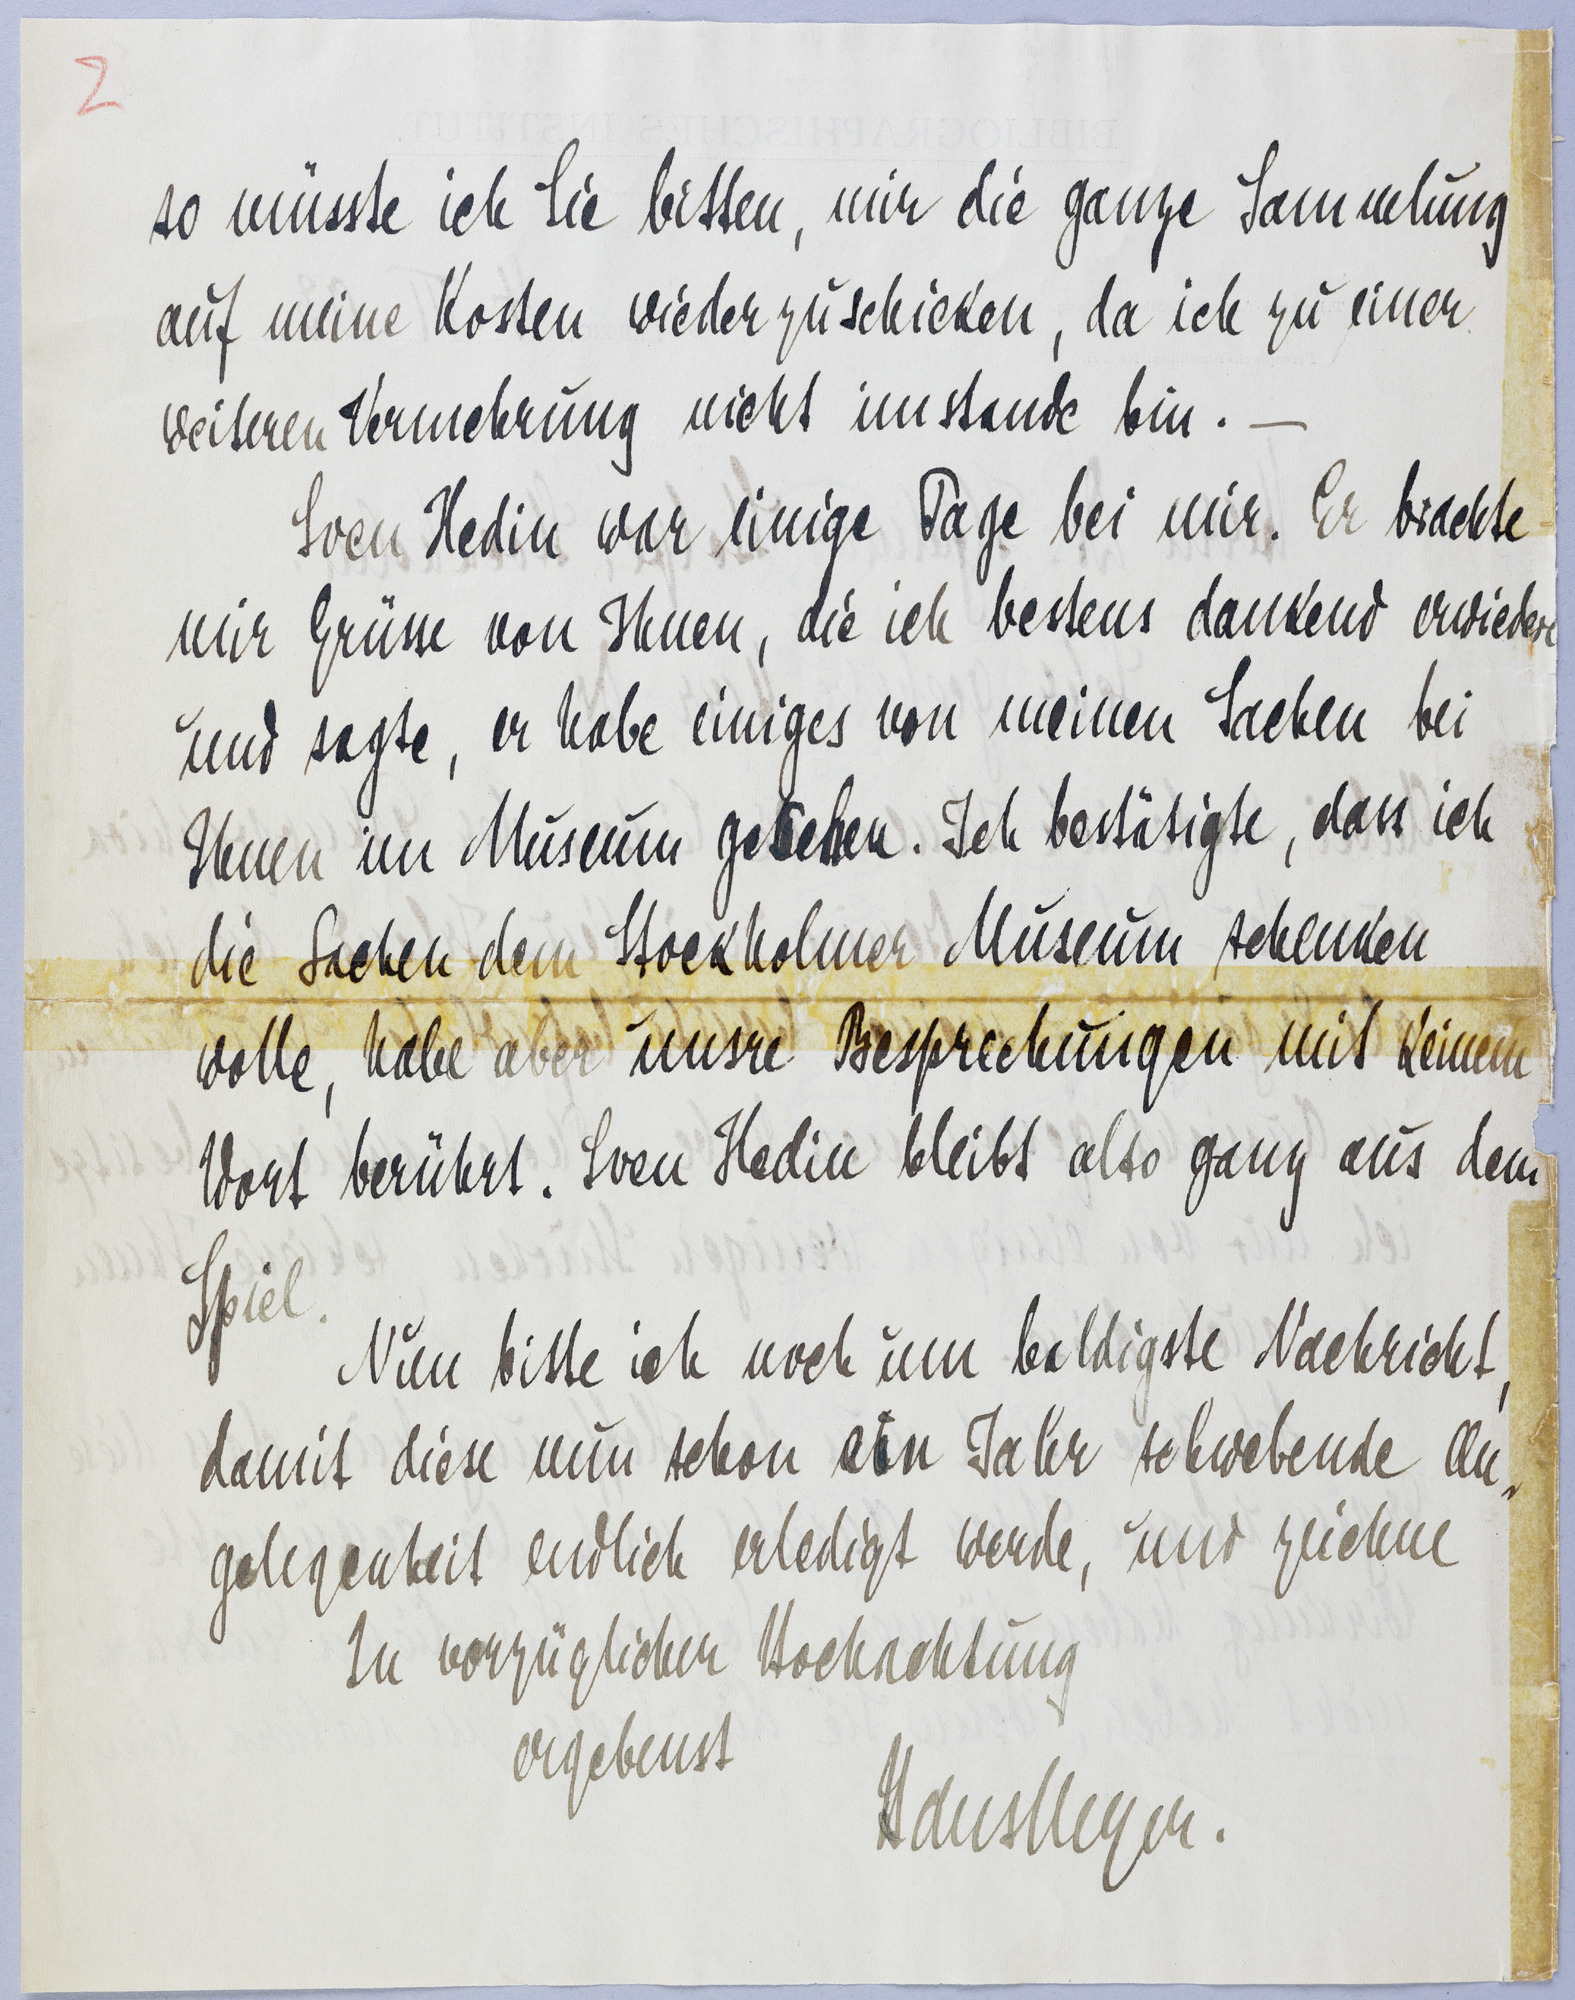 2
so müsste ich Sie bitten, mir die ganze Sammlung
auf meine Kosten wiederzuschicken, da ich zu einer
weiteren Vermehrung nicht imstande bin. —
Sven Hedin war einige Tage bei mir. Er brachte
mir Grüsse von Ihnen, die ich bestens dankend erwiedere
und sagte, er habe einiges von meinen Sachen bei
Ihnen im Museum gesehen. Ich bestätigte, dass ich
die Sachen dem Stockholmer Museum schenken
wolle, habe aber unsre Besprechungen mit keinem
Wort berührt. Sven Hedin bleibt also ganz aus dem
Spiel.
Nun bitte ich noch um baldigste Nachricht,
damit diese nun schon ein Jahr schwebende An„
gelegenheit endlich erledigt werde, und zeichne
In vorzüglicher Hochachtung
ergebenst
Hans Meyer.